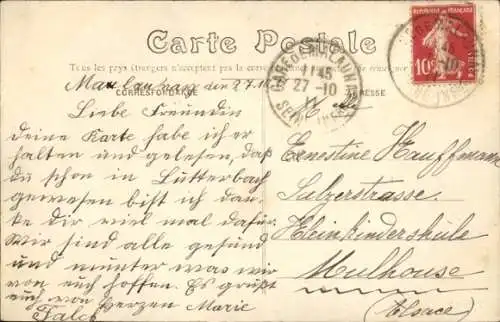 Carte Postale
Tous les pays étrangers n'acceptent pas la correspondance
CORRESPONDANCE
ADRESSE
den 27.10
Liebe Freundin
deine Karte habe ich er
halten und gelesen, daß
du schon in Lutterbach
gewesen bist ich dan
ke dir viel mal dafür.
Wir sind alle gesund
und munter was wir
von euch hoffen. Es grüßt
euch von herzen Marie
Falck
Melle
Ernestine Kauffmann
Sulzerstrasse.
Kleinkinderschüle
Mulhouse
(Alsace)
REPUBLIQUE FRANÇAISE
10c
GARE DE
11 45
27 -10
SEINE